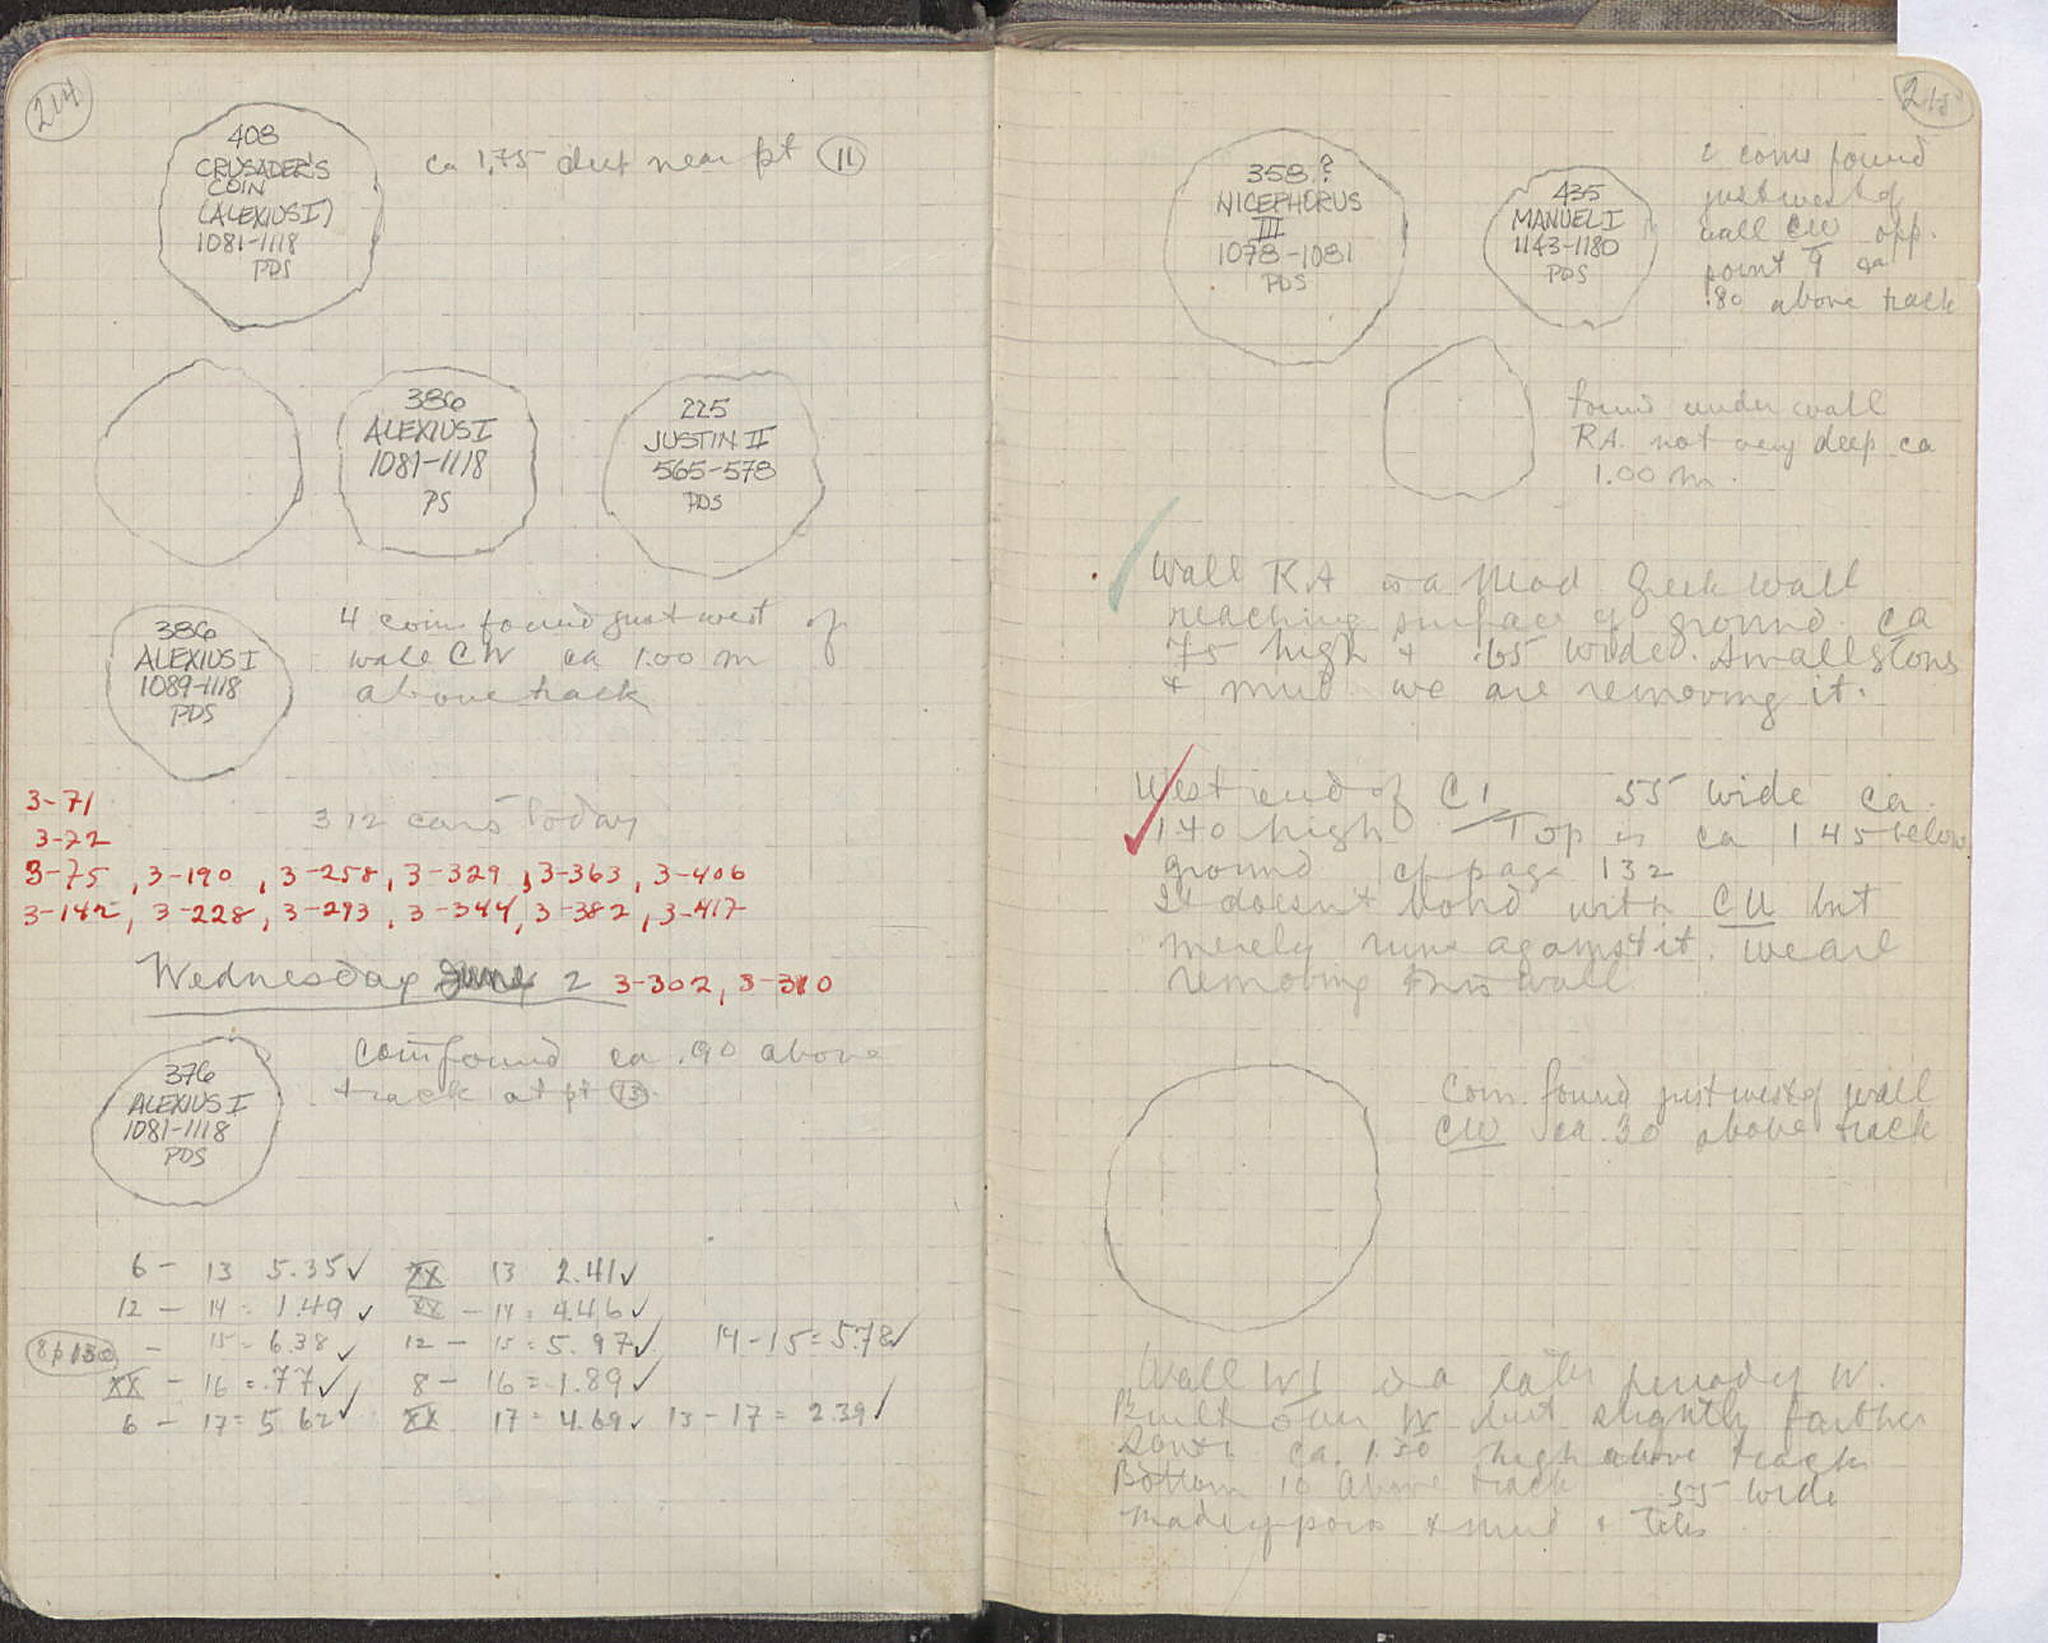 214
408
CRUSADER'S
COIN
(ALEXIUS I)
1081-1118
PDS
ca 1.75 deep near pt 11
386
ALEXIUS I
1081-1118
PS
225
JUSTIN II
565-578
PDS
386
ALEXIUS I
1089-1118
PDS
4 coins found just west of
wall CW ca 1.00 m
above track
3-71
3-72
312 cars today
3-75, 3-190, 3-258, 3-329, 3-363, 3-406
3-142, 3-228, 3-293, 3-344, 3-382, 3-417
Wednesday June 2 3-302, 3-310
376
ALEXIUS I
1081-1118
PDS
coin found ca .90 above
track at pt 13
6 - 13 5.35✓ XX 13 2.41✓
12 - 14 = 1.49✓ XX - 14 = 4.46✓
8 p 130 - 15 = 6.38✓ 12 - 15 = 5.97✓ 14-15 = 5.78✓
XX - 16 = .77✓ 8 - 16 = 1.89✓
6 - 17 = 5 62✓ XX 17 = 4.69✓ 13-17 = 2.39✓
215
358?
NICEPHORUS
III
1078-1081
PDS
435
MANUEL I
1143-1180
PDS
2 coins found
just west of
wall CW opp.
point 9 ca
.80 above track
found under wall
RA not very deep ca
1.00 m.
Wall RA is a Mod Greek wall
reaching surface of ground. ca
75 high + .65 wide. Small stones
+ mud we are removing it.
West end of C1 55 wide ca.
1 40 high. Top is ca 1 45 below
ground cf page 132
It doesn't bond with CU but
merely runs against it. We are
removing this wall
Coin found just west of wall
CW ca .30 above track
Wall W1 is a later period of W.
Built over W but slightly farther
South ca. 1.30 high above track
Bottom 10 above track .55 wide
made of poros + mud + tiles